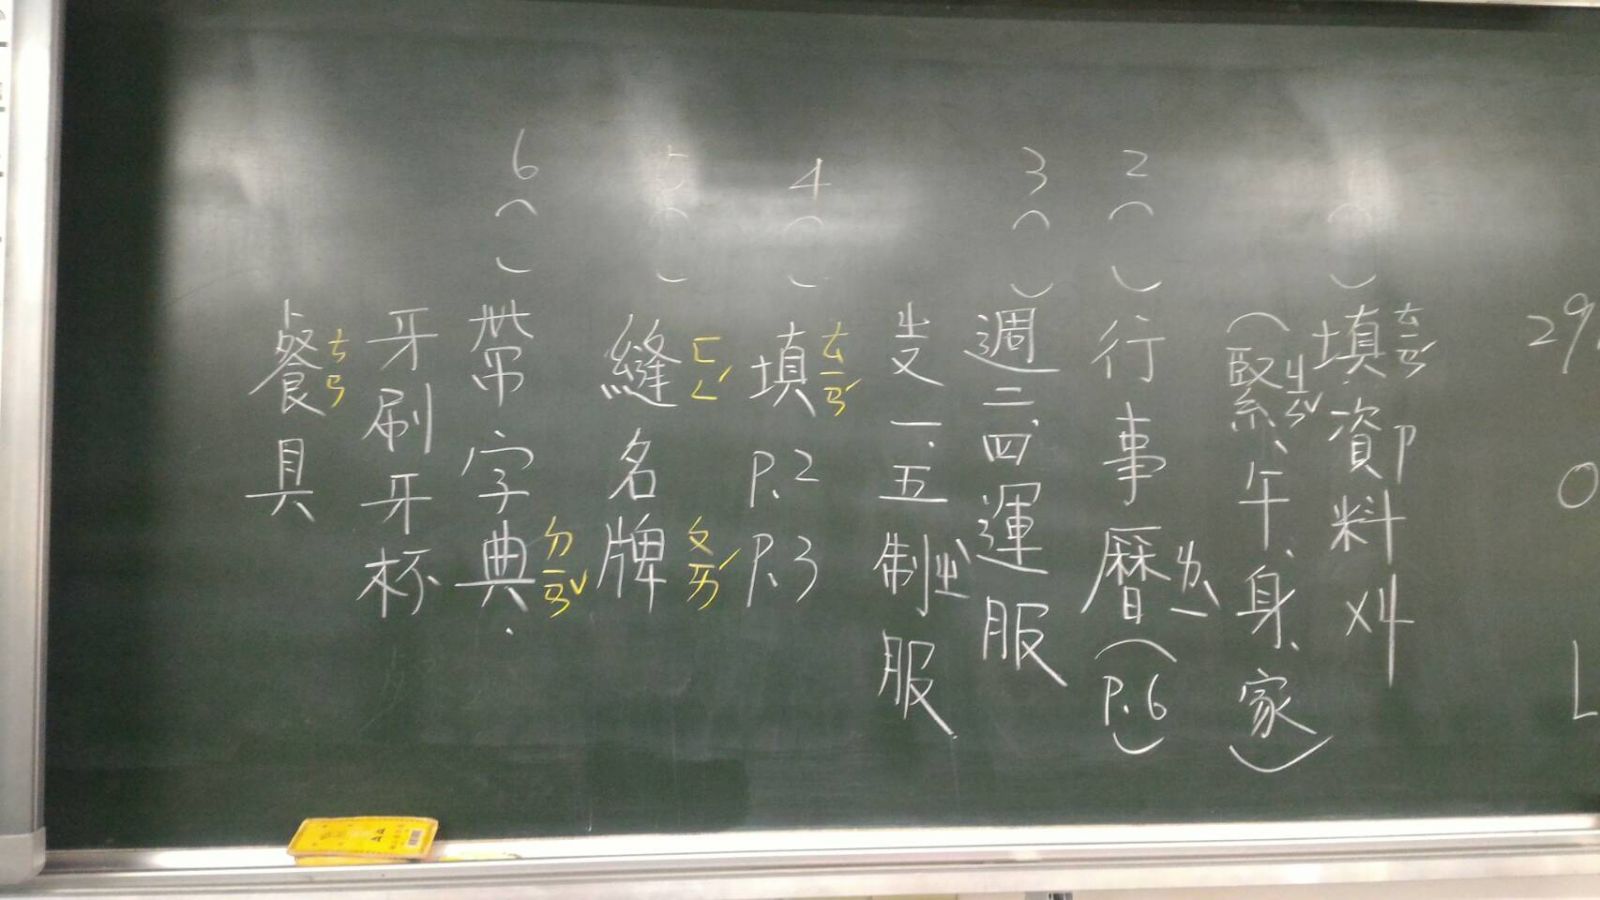 29.
0
L
( )填ㄊㄧㄢˊ資料x4
(緊ㄐㄧㄣˇ、午、身、家)
2( )行事曆ㄌㄧˋ(P.6)
3( )週二、四運服
一、五制ㄓˋ服
4( )填ㄊㄧㄢˊP.2 P.3
5( )縫ㄈㄥˊ名牌ㄆㄞˊ
6( )帶字典ㄉㄧㄢˇ.
牙刷牙杯
餐ㄘㄢ具